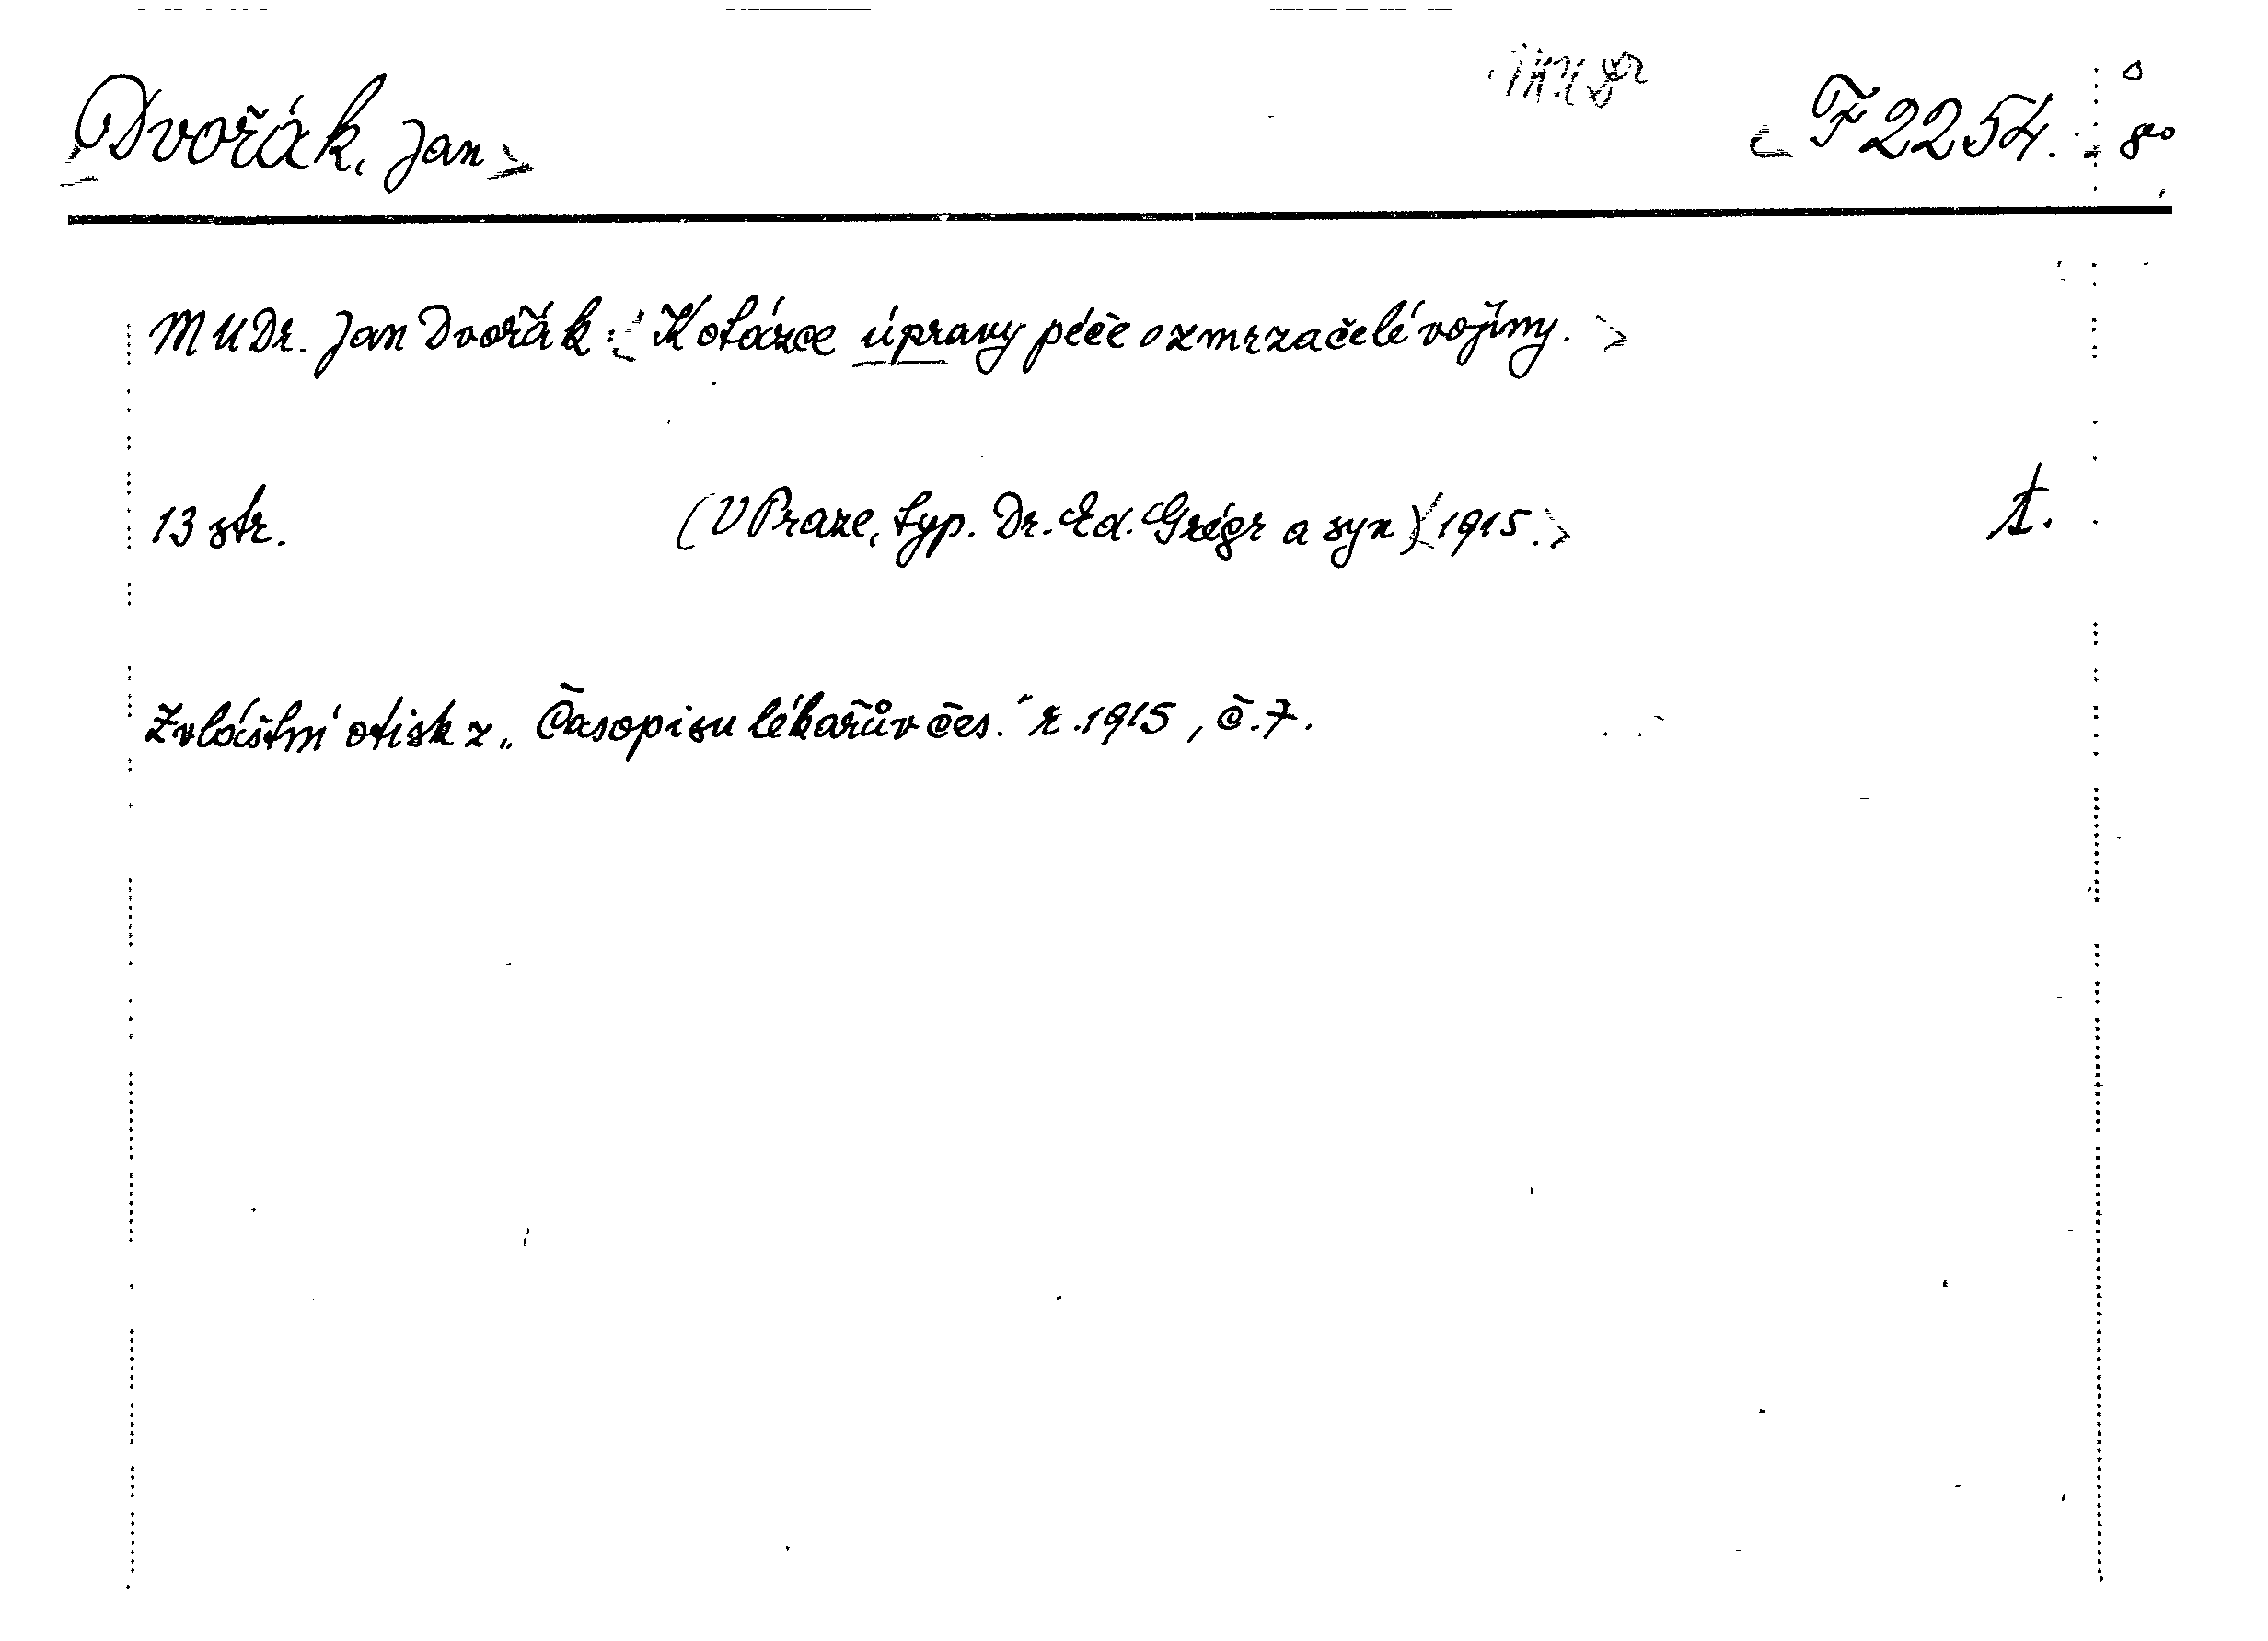 Dvořák, Jan MUDr F 2254. 8vo
MUDr. Jan Dvořák: K otázce úpravy péče o zmrzačelé vojíny.
13 str. (V Praze, typ. Dr. Ed. Grégr a syn) 1915. t.
Zvláštní otisk z „Časopisu lékařův čes." r. 1915, č. 7.